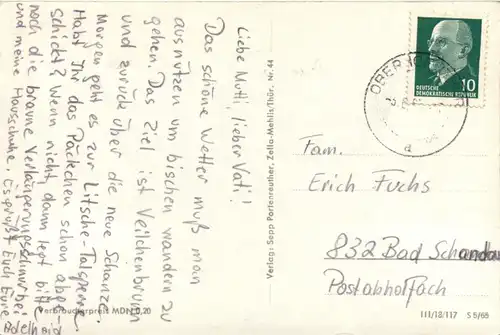 Liebe Mutti, lieber Vati!
Das schöne Wetter muß man
ausnützen um bischen wandern zu
gehen. Das Ziel ist Veilchenbrunn
und zurück über die neue Schanze.
Morgen geht es zur Lütsche-Talsperre.
Habt Ihr das Päckchen schon abge-
schickt? Wenn nicht, dann legt bitte
noch die braune Verlängerungsschnur bei
und meine Hausschuhe. Es grüßt Euch Eure
Adelheid
Verbraucherpreis MDN 0,20
Verlag: Sepp Partenreuther, Zella-Mehlis/Thür. Nr. 44
10
DEUTSCHE
DEMOKRATISCHE REPUBLIK
a
Fam.
Erich Fuchs
832 Bad Schandau
Postabholfach
III/18/117 S 8/65